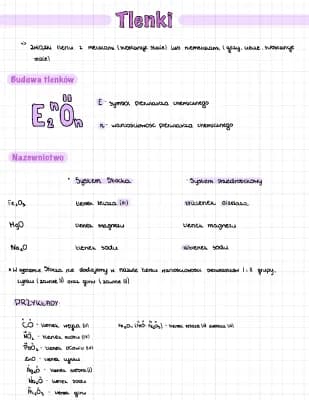 Tlenki
Związki tlenu z metalami (substancje stałe) lub niemetalami (gazy, ciecze, substancje stałe)
Budowa tlenków
n II
E₂Oₙ
E - symbol pierwiastka chemicznego
n - wartościowość pierwiastka chemicznego
Nazewnictwo
• System Stocka
• System przedrostkowy
Fe₂O₃ tlenek żelaza (III) tritlenek diżelaza
MgO tlenek magnezu tlenek magnezu
Na₂O tlenek sodu tlenek sodu
* W systemie Stocka nie dodajemy w nazwie tlenku wartościowości pierwiastków 1 i 2 grupy,
cynku (zawsze II) oraz glinu (zawsze III)
PRZYKŁADY:
CO - tlenek węgla (II)
- tlenek (IV)
PbO₂ - tlenek ołowiu (IV)
ZnO - tlenek cynku
Ag₂O - tlenek srebra (I)
Na₂O - tlenek sodu
Al₂O₃ - tlenek glinu